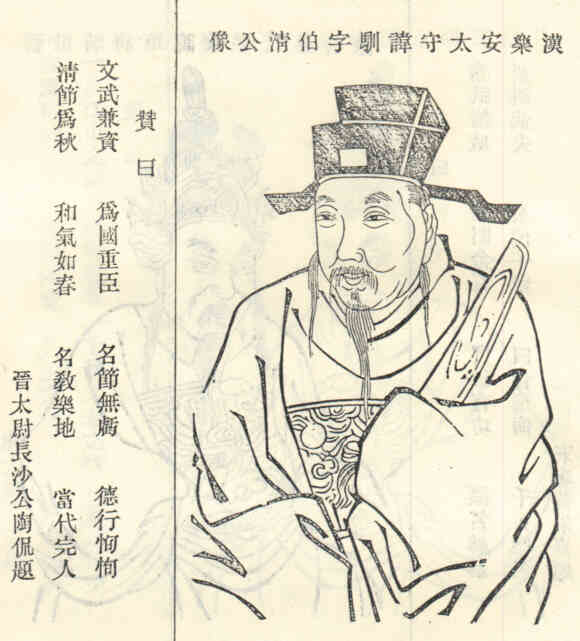 漢樂安太守諱馴字伯清公像
賛曰
文武兼資 爲國重臣 名節無虧 德行恂恂
清節爲秋 和氣如春 名敎樂地 當代完人
晉太尉長沙公陶侃題